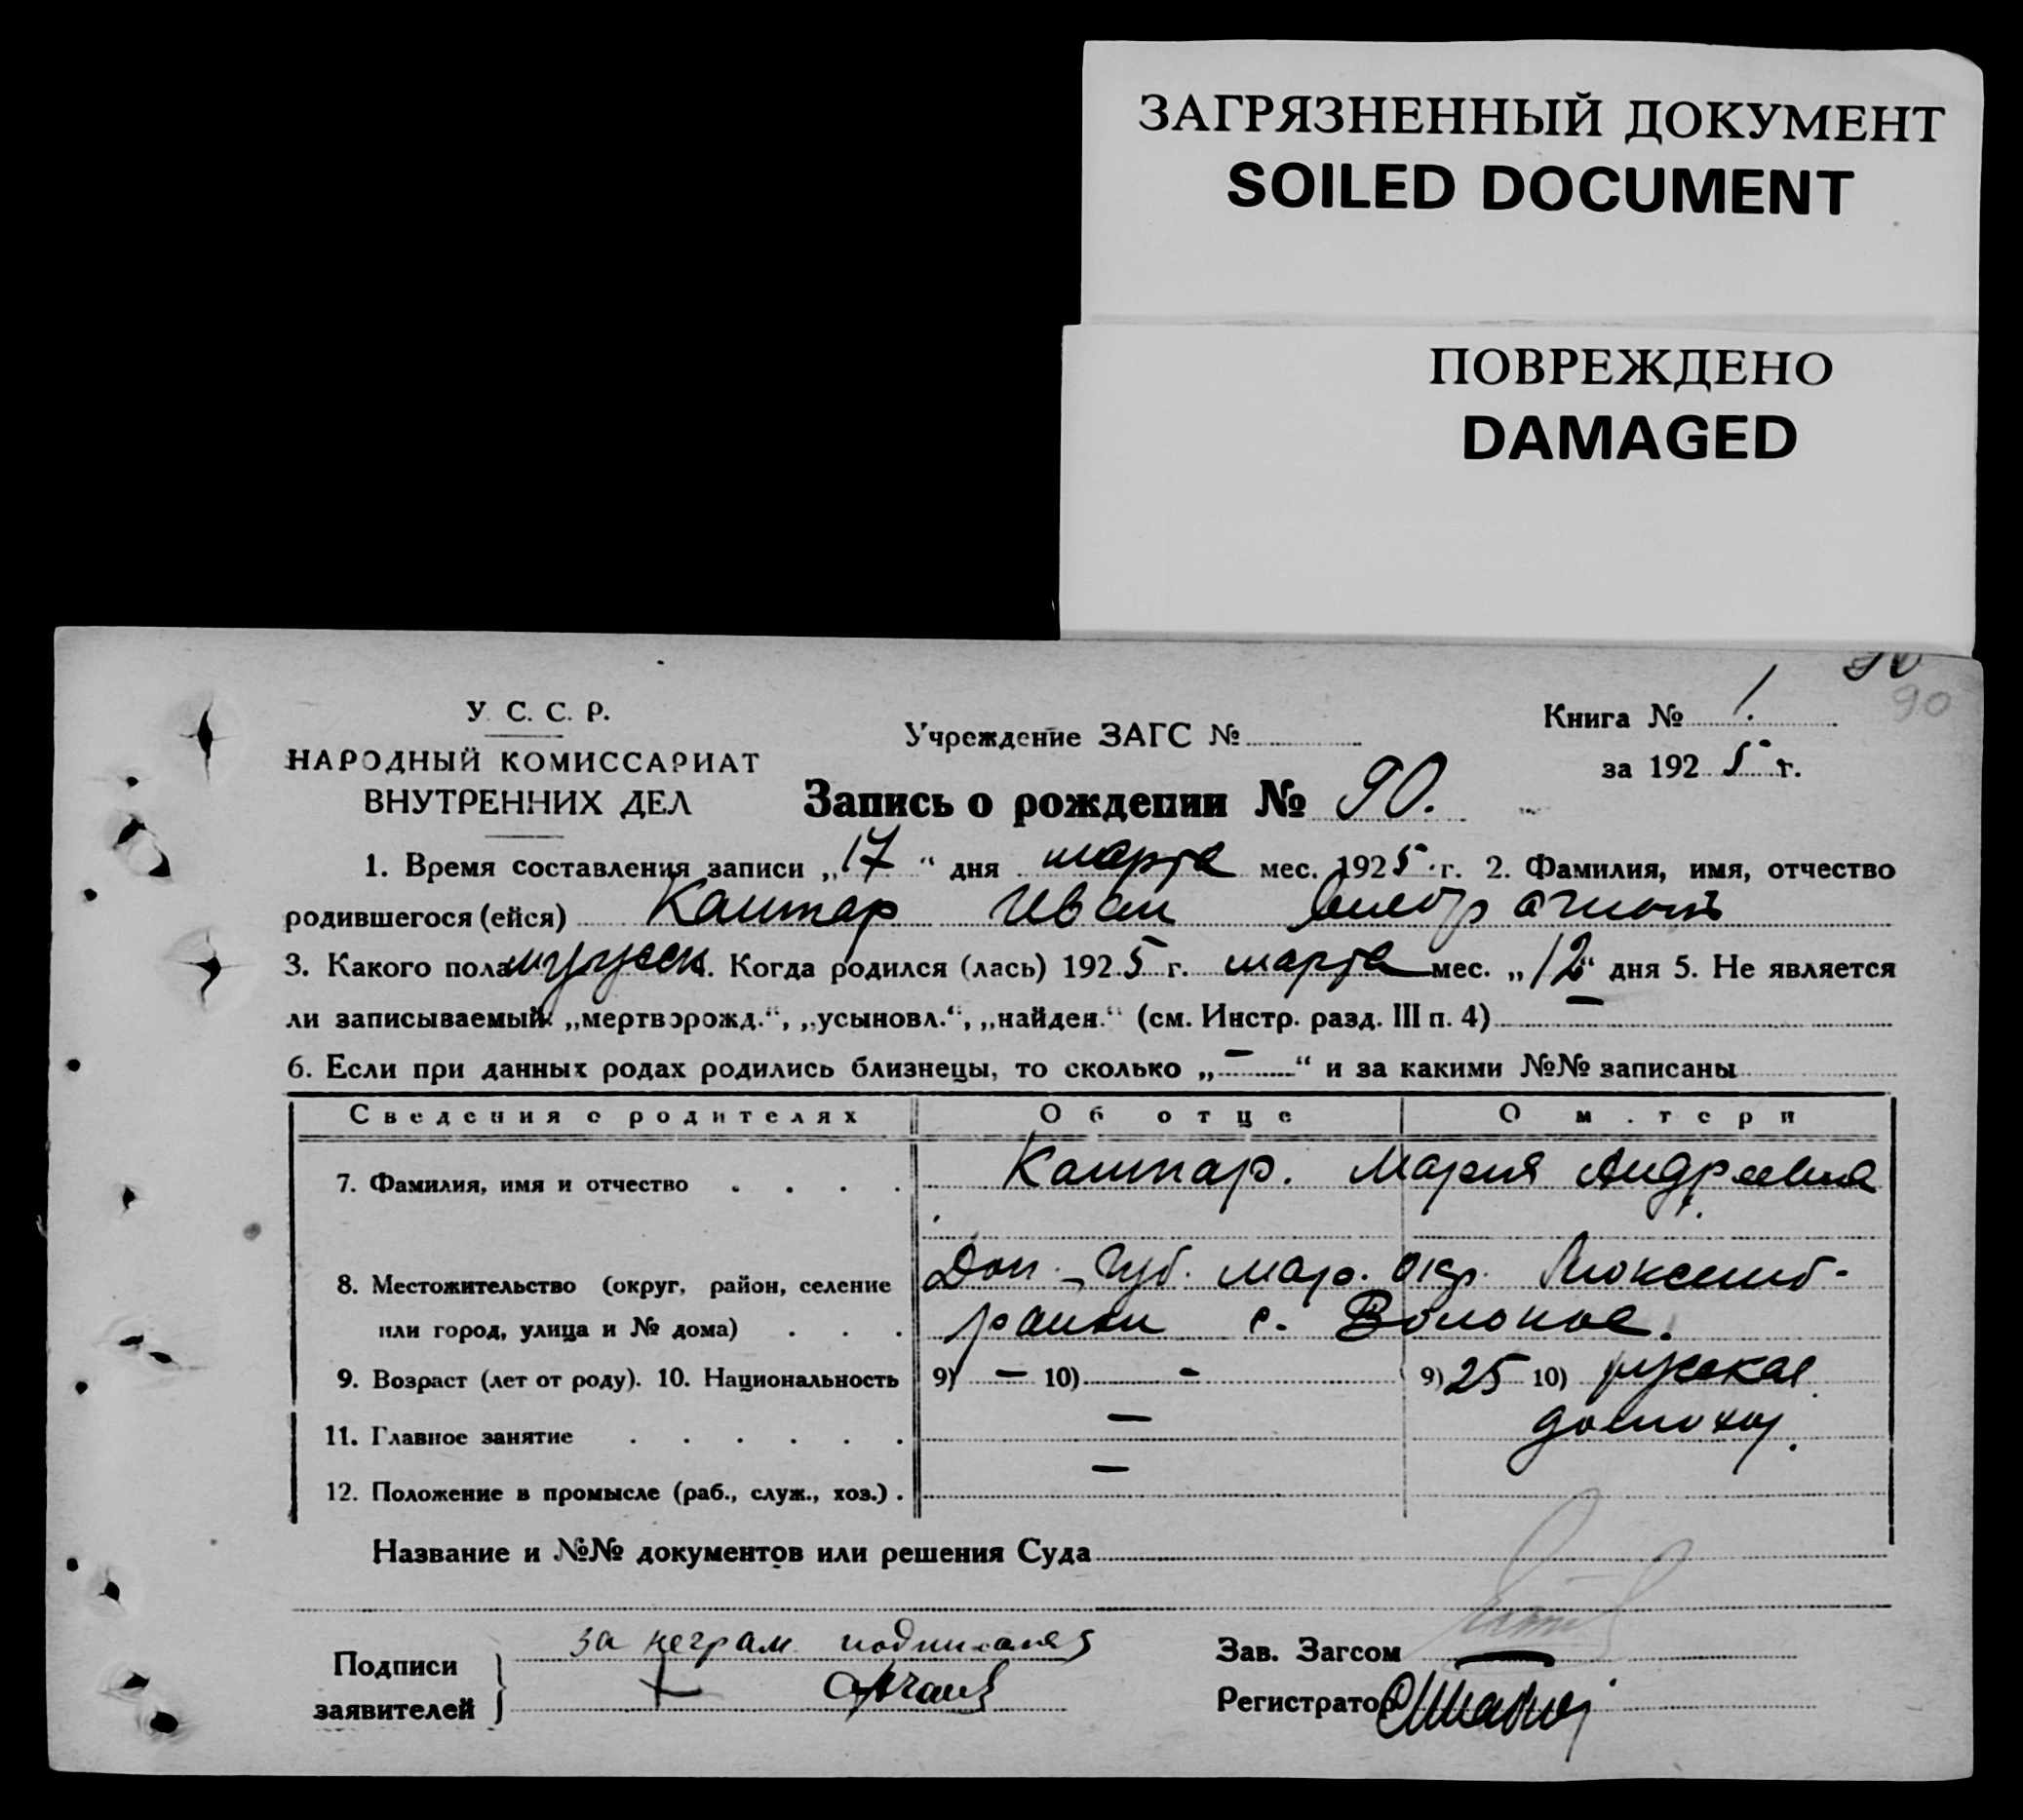 ЗАГРЯЗНЕННЫЙ ДОКУМЕНТ
SOILED DOCUMENT
ПОВРЕЖДЕНО
DAMAGED
90
У. С. С. Р.
НАРОДНЫЙ КОМИССАРИАТ
ВНУТРЕННИХ ДЕЛ
Учреждение ЗАГС №
Книга № 1.
за 1925 г.
Запись о рождении № 90.
1. Время составления записи „17“ дня марта мес. 1925 г. 2. Фамилия, имя, отчество
родившегося (ейся) Каштар Иван
3. Какого пола мужск 4. Когда родился (лась) 1925 г. марта мес. „12“ дня 5. Не является
ли записываемый „мертворожд.“, „усыновл.“, „найден.“ (см. Инстр. разд. III п. 4) —
6. Если при данных родах родились близнецы, то сколько „—“ и за какими №№ записаны
Сведения о родителях Об отце О м.тери
7. Фамилия, имя и отчество . . . . Каштар. Мария Андреевна
8. Местожительство (округ, район, селение Дон. губ. мар. окр.
или город, улица и № дома) . . . района с.
9. Возраст (лет от роду). 10. Национальность 9) — 10) - 9) 25 10) русская
11. Главное занятие . . . . . . — домохоз.
12. Положение в промысле (раб., служ., хоз.) . —
Название и №№ документов или решения Суда
Подписи
заявителей
за неграм. подписался
+
Зав. Загсом —
Регистратор